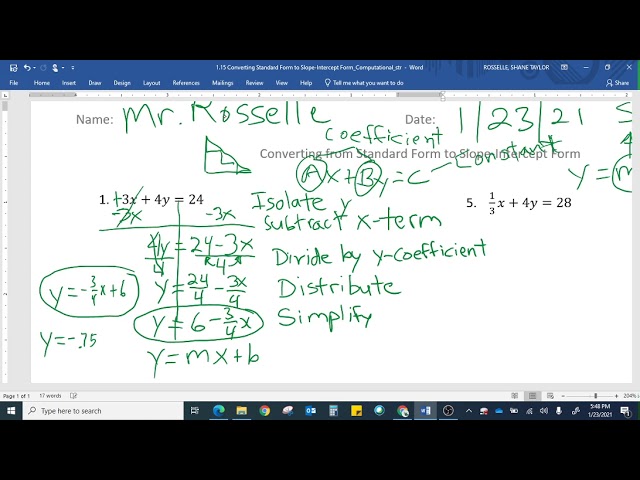 1.15 Converting Standard Form to Slope-Intercept Form_Computational_str - Word
ROSSELLE, SHANE TAYLOR
File Home Insert Draw Design Layout References Mailings Review View Help Tell me what you want to do
Name: Mr. Rosselle Date: 1/23/21 S
Coefficient
Converting from Standard Form to Slope-Intercept Form
Ax+By=C Constant
y = m
1. +3x + 4y = 24
-3x -3x
4y = 24-3x
4 4
y = 24/4 - 3x/4
y = 6 - 3/4 x
y = mx+b
y=-3/4x+6
y=-.75
Isolate y
subtract x-term
Divide by y-coefficient
Distribute
Simplify
5. 1/3 x + 4y = 28
Page 1 of 1 17 words
204%
Type here to search
5:48 PM
1/23/2021